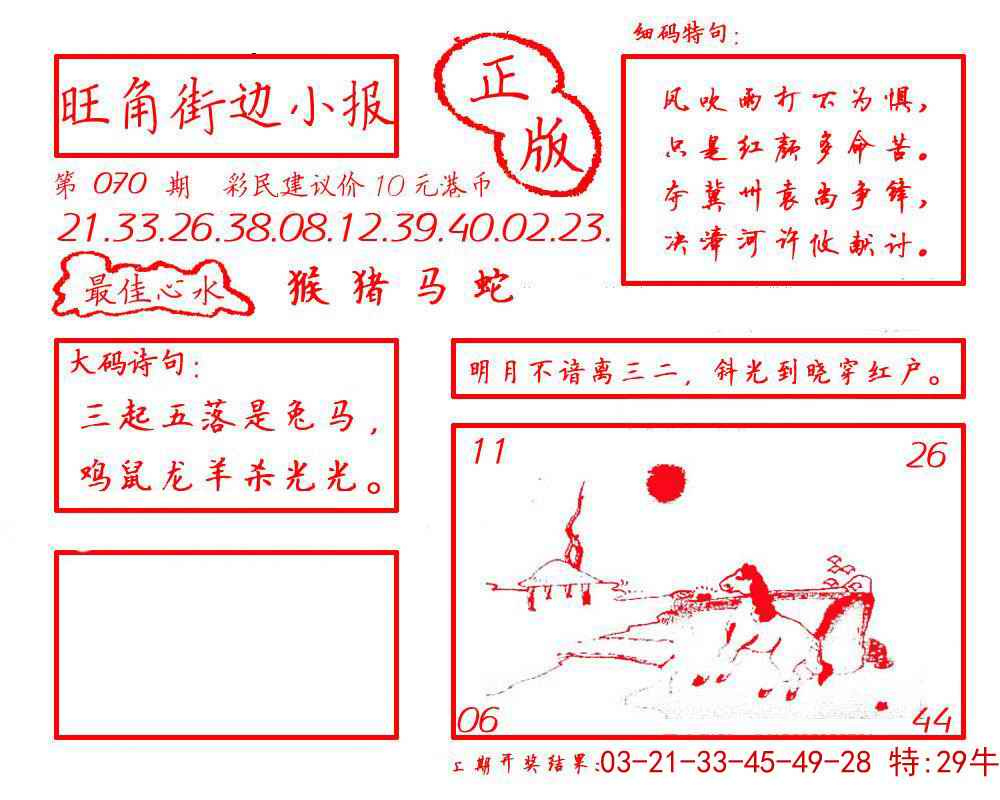 旺角街边小报
正版
第 070 期 彩民建议价10元港币
21.33.26.38.08.12.39.40.02.23.
最佳心水 猴 猪 马 蛇
细码特句:
风吹雨打不为惧,
只是红颜多命苦。
夺冀州袁尚争锋,
决漳河许攸献计。
大码诗句:
三起五落是兔马,
鸡鼠龙羊杀光光。
明月不谙离三二,斜光到晓穿红户。
11
26
06
44
上期开奖结果:03-21-33-45-49-28 特:29牛